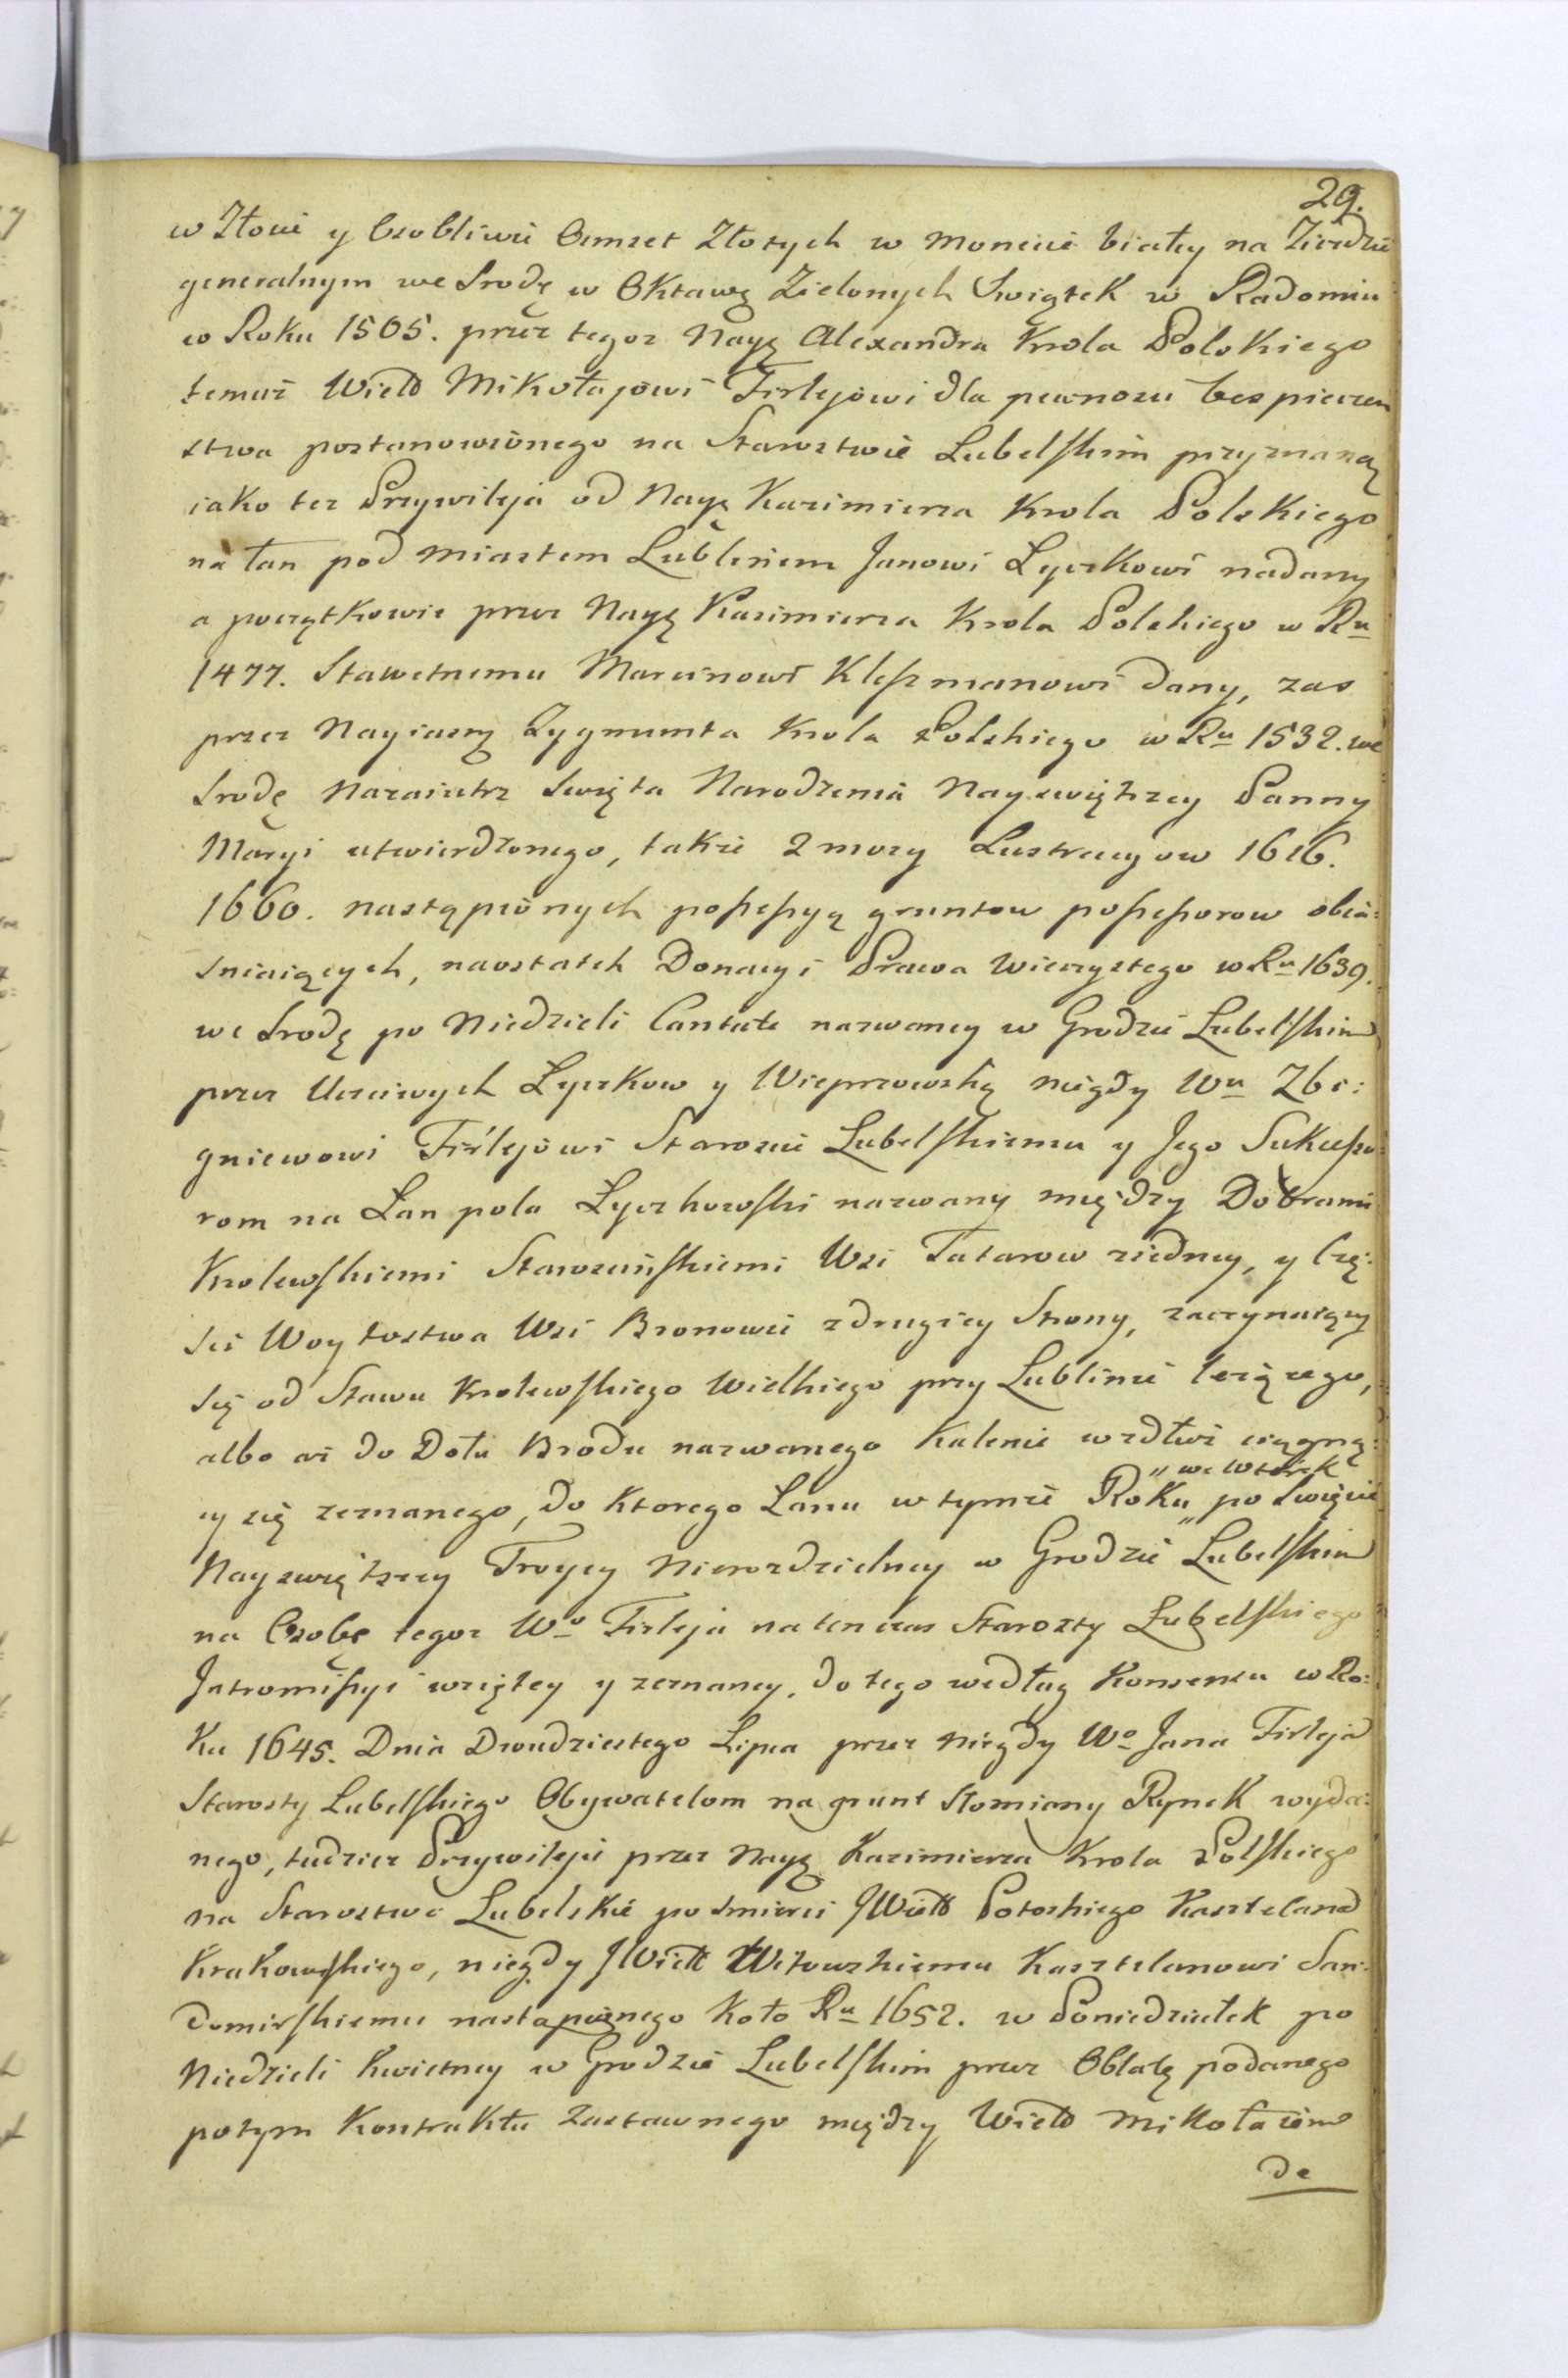 29.
w Złocie y Osobliwie Osmset Złotych w monecie białey na Zieździe
generalnym we Srodę w Oktawę Zielonych Swiątek w Radomiu
w Roku 1505. przez tegoz Nayę Alexandra Krola Polskiego
temuż Wielo Mikołajowi Firlejowi dla pewnosci bespieczen
stwa postanowionego na Starostwie Lubelskim przyznaną
iako tez Przywileja od Nayę Kazimierza Krola Polskiego
na łan pod miastem Lublinem Janowi Łyczkowi nadany
a początkowie przez Nayę Kazimierza Krola Polskiego w Ru
1477. Sławetnemu Marcinowi Kleszmanowi dany, zas
przez Nayiasnę Zygmunta Krola Polskiego w Ru 1532. we
Srodę nazaiutrz Swięta Narodzenia Nayswiętszey Panny
Maryi utwierdzonego, także z mocy Lustracyow 1616.
1660. nastąpionych possessyą gruntow possessorow obia:
sniaiących, naostatek Donacyi Prawa Wieczystego w Ru 1639.
we Srodę po Niedzieli Cantate nazwaney w Grodzie Lubelskim
przez Uczciwych Łyczkow y Wieprzowską niegdy Wu Zbi:
gniewowi Firlejowi Staroscie Lubelskiemu y Jego Sukcesso
rom na Łan pola Łyczkowski nazwany między Dobrami
Krolewskiemi Staroscińskiemi Wsi Tatarow ziedney, y Czę:
sci Woytostwa Wsi Bronowic zdrugiey Strony, zaczynaiący
się od Stawu Krolewskiego Wielkiego przy Lublinie leżącego,
albo aż do Dołu Brodu nazwanego Kalenie wzdłuż ciągną:
cy się zeznanego, do ktorego Łanu w tymże Roku „we Wtorek„ po Swięcie
Nayswiętszey Troycy Nierozdzielney w Grodzie Lubelskim
na Osobę tegoz Wo Firleja natenczas Starosty Lubelskiego
Intromissyi wziętey y zeznaney, do tego według Konsensu w Ro:
ku 1645. Dnia Dwudziestego Lipca przez niegdy Wo Jana Firleja
Starosty Lubelskiego Obywatelom na grunt Słomiany Rynek wyda:
nego, tudzież Przywileju przez Nayę Kazimierza Krola Polskiego
na Starostwo Lubelskie po smierci JWielo Potockiego Kasztelana
Krakowskiego, niegdy JWielo Witowskiemu Kasztelanowi San:
domirskiemu nastąpionego koło Ru 1652. w Poniedziałek po
Niedzieli Kwietney w Grodzie Lubelskim przez Oblatę podanego
potym Kontraktu Zastawnego między Wielo Mikołaiem
de